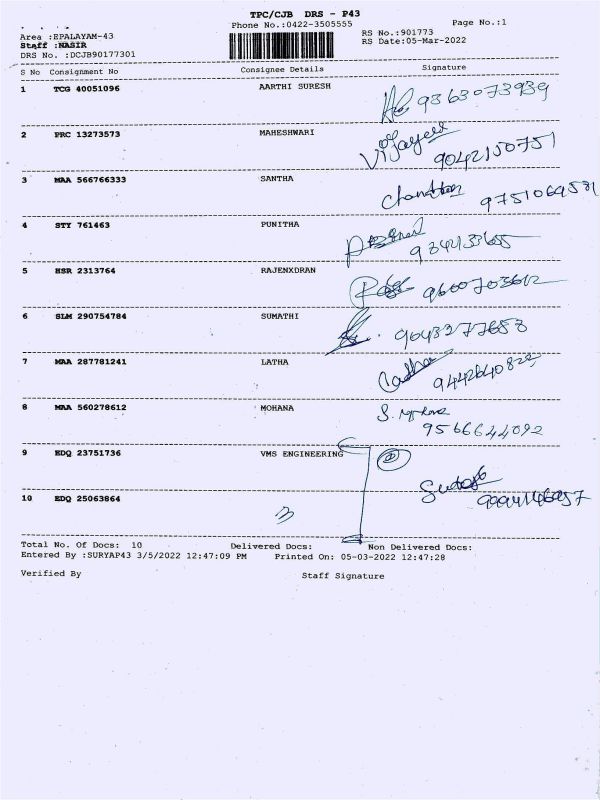 TPC/CJB DRS - P43
Phone No.:0422-3505555
Page No.:1
Area :EPALAYAM-43
RS No.:901773
Staff :NASIR
RS Date:05-Mar-2022
DRS No. :DCJB90177301
S No Consignment No Consignee Details Signature
1 TCG 40051096 AARTHI SURESH 9363073939
2 PRC 13273573 MAHESHWARI Vijayee 9042150751
3 MAA 566766333 SANTHA 9751069581
4 STY 761463 PUNITHA
5 HSR 2313764 RAJENXDRAN 9600703612
6 SLM 290754784 SUMATHI 9043277658
7 MAA 287781241 LATHA Latha
8 MAA 560278612 MOHANA 9566644092
9 EDQ 23751736 VMS ENGINEERING
10 EDQ 25063864
Total No. Of Docs: 10 Delivered Docs: Non Delivered Docs:
Entered By :SURYAP43 3/5/2022 12:47:09 PM Printed On: 05-03-2022 12:47:28
Verified By Staff Signature